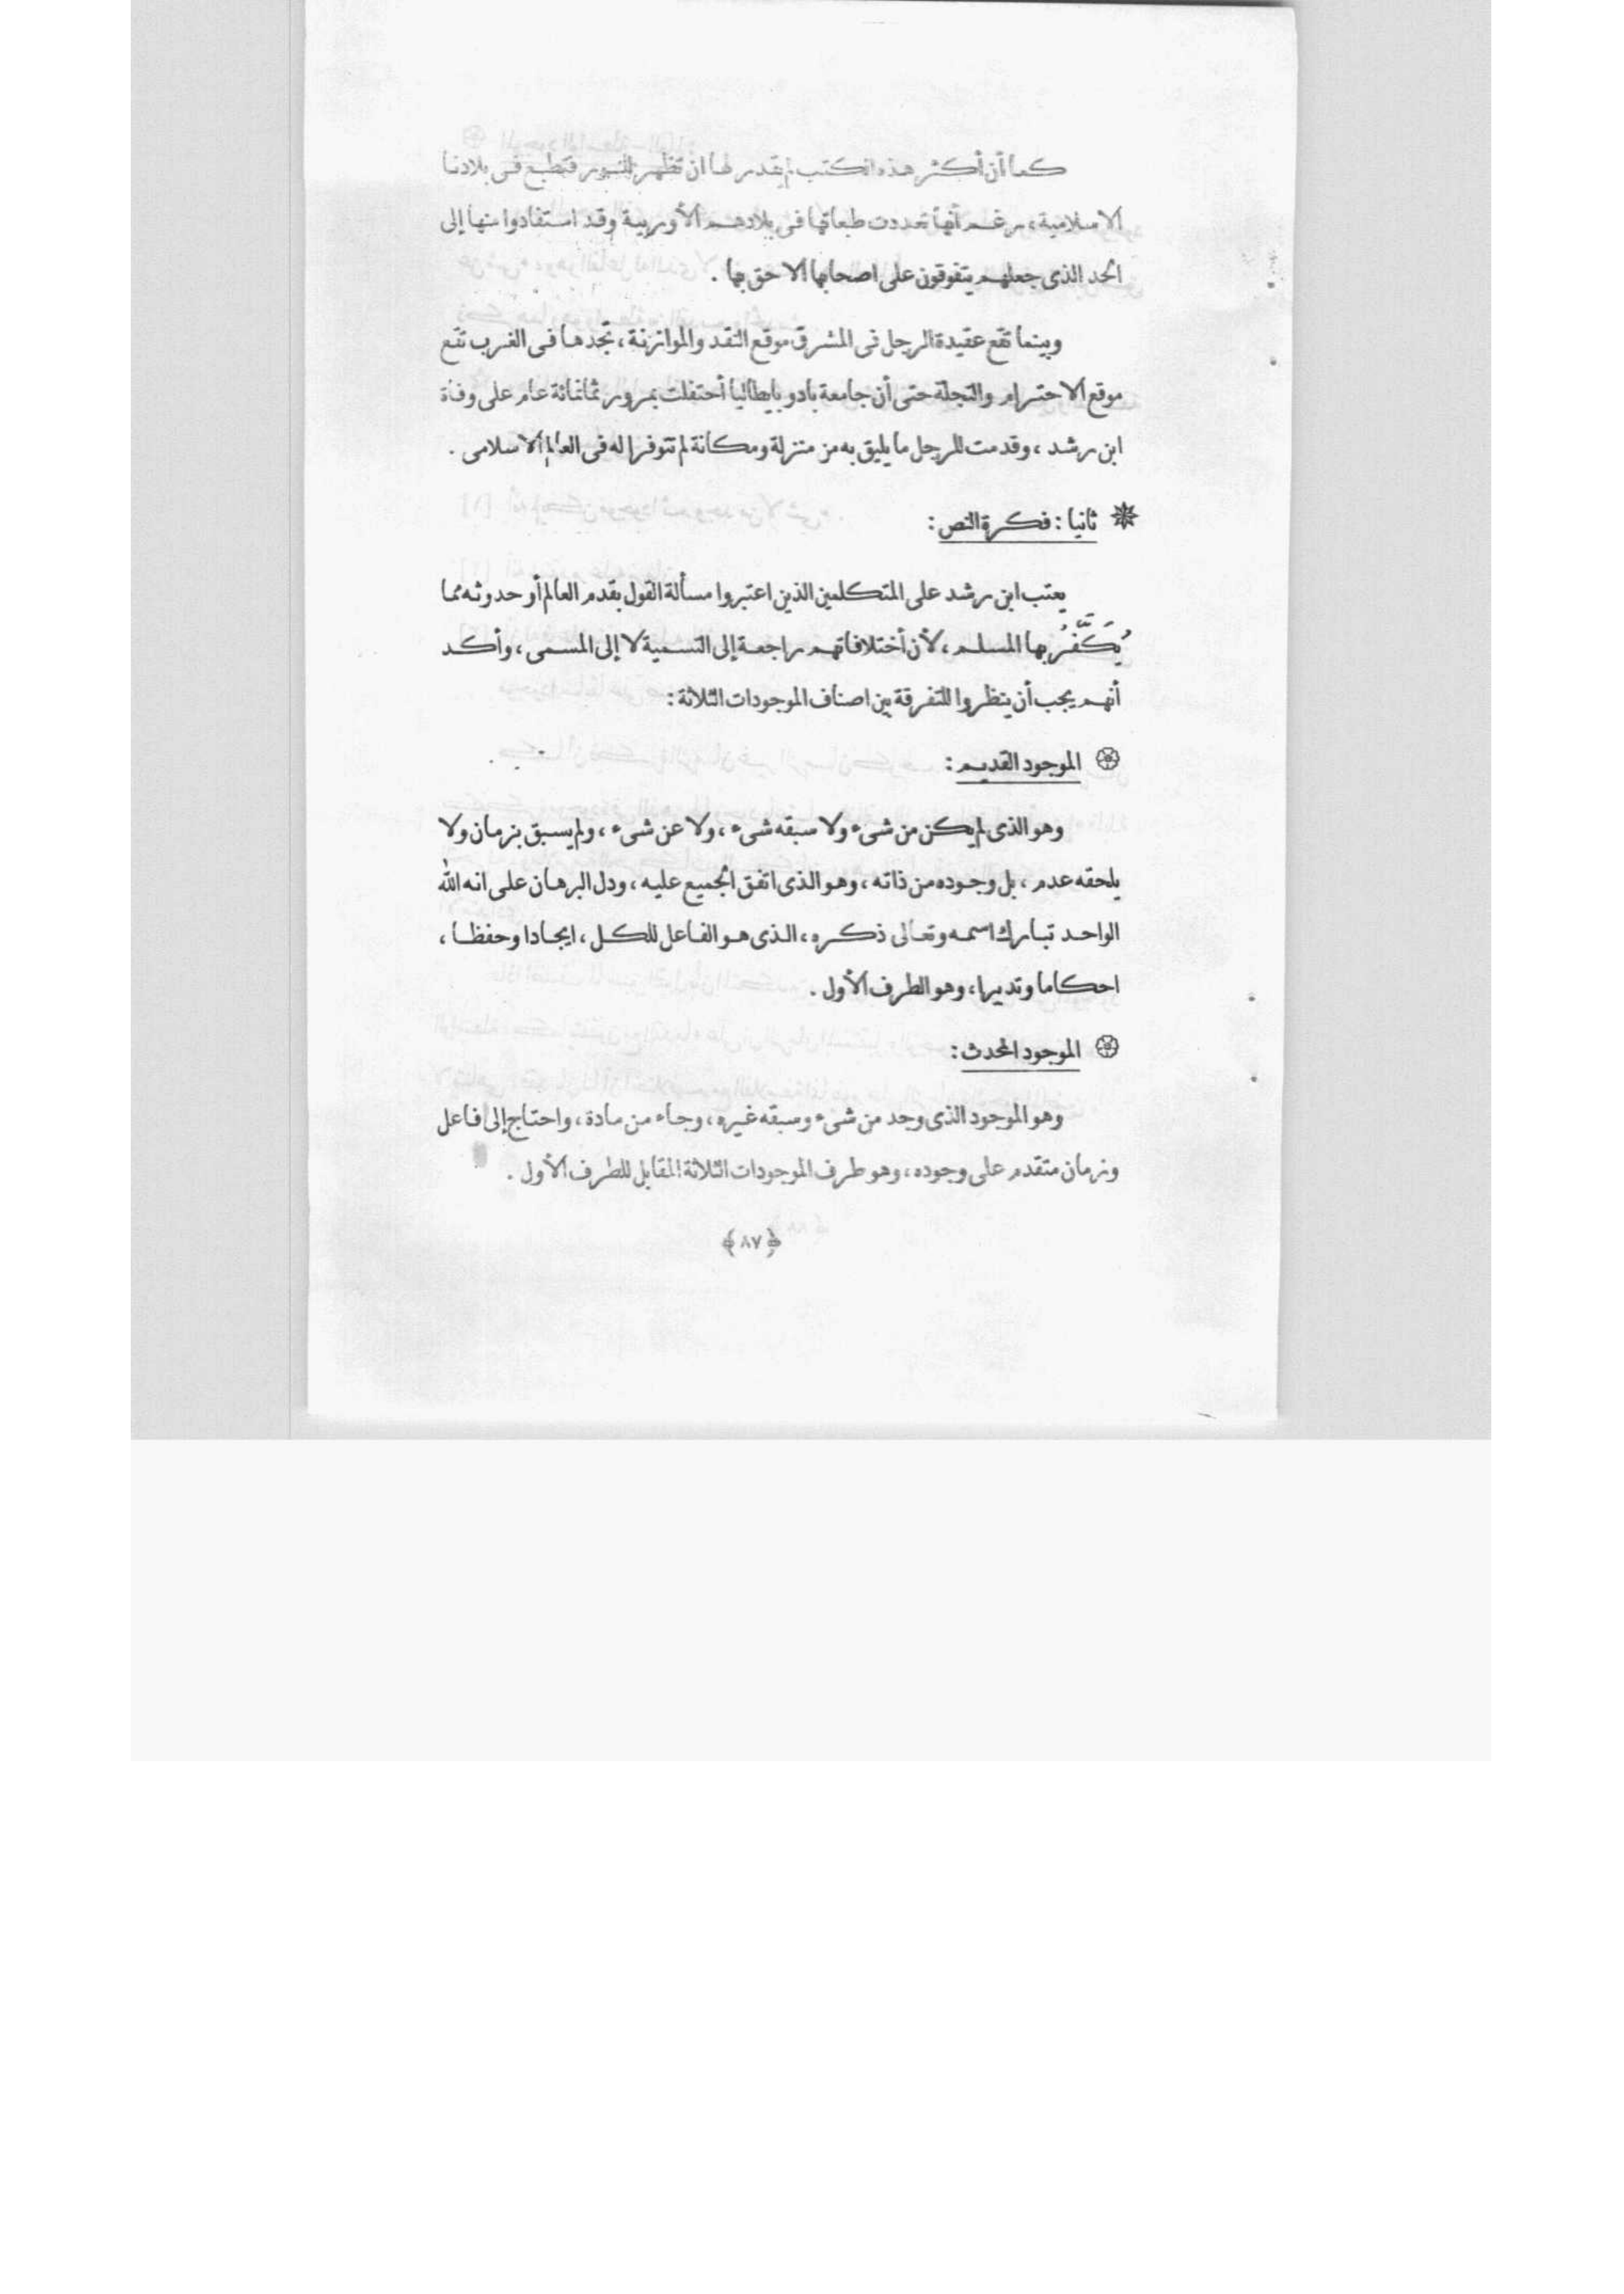 كما أن أكثر هذه الكتب لم يقدر لها ان تظهر للنور فتطبع فى بلادنا
الاسلامية، رغم أنها تعددت طبعاتها فى بلادهم الأوربية وقد استفادوا منها إلى
الحد الذى جعلهم يتفوقون على اصحابها الاحق بها .
وبينما تقع عقيدة الرجل فى المشرق موقع النقد والموازنة، تجدها فى الغرب تقع
موقع الاحترام والتجلة حتى أن جامعة بادو بايطاليا أحتفلت بمرور ثمانمائة عام على وفاة
ابن رشد ، وقدمت للرجل ما يليق به من منزلة ومكانة لم تتوفر له فى العالم الاسلامى .
ثانيا : فكرة النص :
يعتب ابن رشد على المتكلمين الذين اعتبروا مسألة القول بقدم العالم أو حدوثه مما
يُكَفَّرُ بها المسلم ، لأن أختلافاتهم راجعة إلى التسمية لا إلى المسمى ، وأكد
أنهم يجب أن ينظروا للتفرقة بين اصناف الموجودات الثلاثة :
الموجود القديم :
وهو الذى لم يكن من شىء ولا سبقه شىء ، ولا عن شىء ، ولم يسبق بزمان ولا
يلحقه عدم ، بل وجوده من ذاته ، وهو الذى اتفق الجميع عليه ، ودل البرهان على انه الله
الواحد تبارك اسمه وتعالى ذكره ، الذى هو الفاعل للكل ، ايجادا وحفظا ،
احكاما وتدبيرا، وهو الطرف الأول .
الموجود المحدث :
وهو الموجود الذى وجد من شىء وسبقه غيره ، وجاء من مادة ، واحتاج إلى فاعل
وزمان متقدم على وجوده ، وهو طرف الموجودات الثلاثة المقابل للطرف الأول .
﴿٨٧﴾